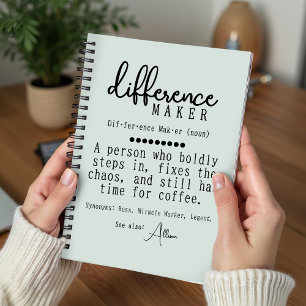 difference
MAKER
Dif·fer·ence Mak·er (noun)
A person who boldly
steps in, fixes the
chaos, and still ha
time for coffee.
Synonyms: Boss, Miracle Worker, Legend,
See also: Allison